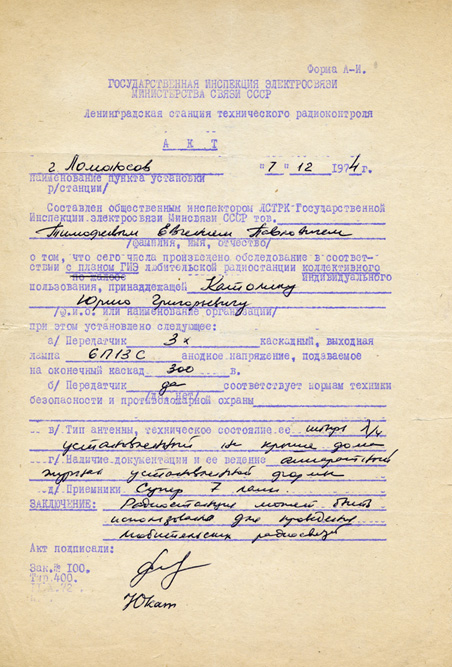 Форма А-И.
ГОСУДАРСТВЕННАЯ ИНСПЕКЦИЯ ЭЛЕКТРОСВЯЗИ
МИНИСТЕРСТВА СВЯЗИ СССР
Ленинградская станция технического радиоконтроля
А К Т
г Ломоносов "7" 12 1974г.
наименование пункта установки
р/станции/
Составлен общественным инспектором ЛСТРК Государственной
Инспекции электросвязи Минсвязи СССР тов.
Тимофеевым Евгением Павловичем
/фамилия, имя, отчество/
о том, что сего числа произведено обследование в соответ-
ствии с планом ГИЭ любительской радиостанции коллективного
по жалобе индивидуального
пользования, принадлежащей Катонину
Юрию Григорьевичу
/ф.и.о. или наименование организации/
при этом установлено следующее:
а/ Передатчик 3х каскадный, выходная
лампа 6П13С анодное напряжение, подаваемое
на оконечный каскад 300 в.
б/ Передатчик да соответствует нормам техники
/да нет/
безопасности и противопожарной охраны
в/ Тип антенны, техническое состояние ее штырь λ/4
установленный на крыше дома
г/ Наличие документации и ее ведение аппаратный
журнал установленной формы
д/ Приемники Супер 7 ламп.
ЗАКЛЮЧЕНИЕ: Радиостанция может быть
использована для проведения
любительских радиосвязей
Акт подписали:
Зак.№ 100.
Тир.400.
Юкат